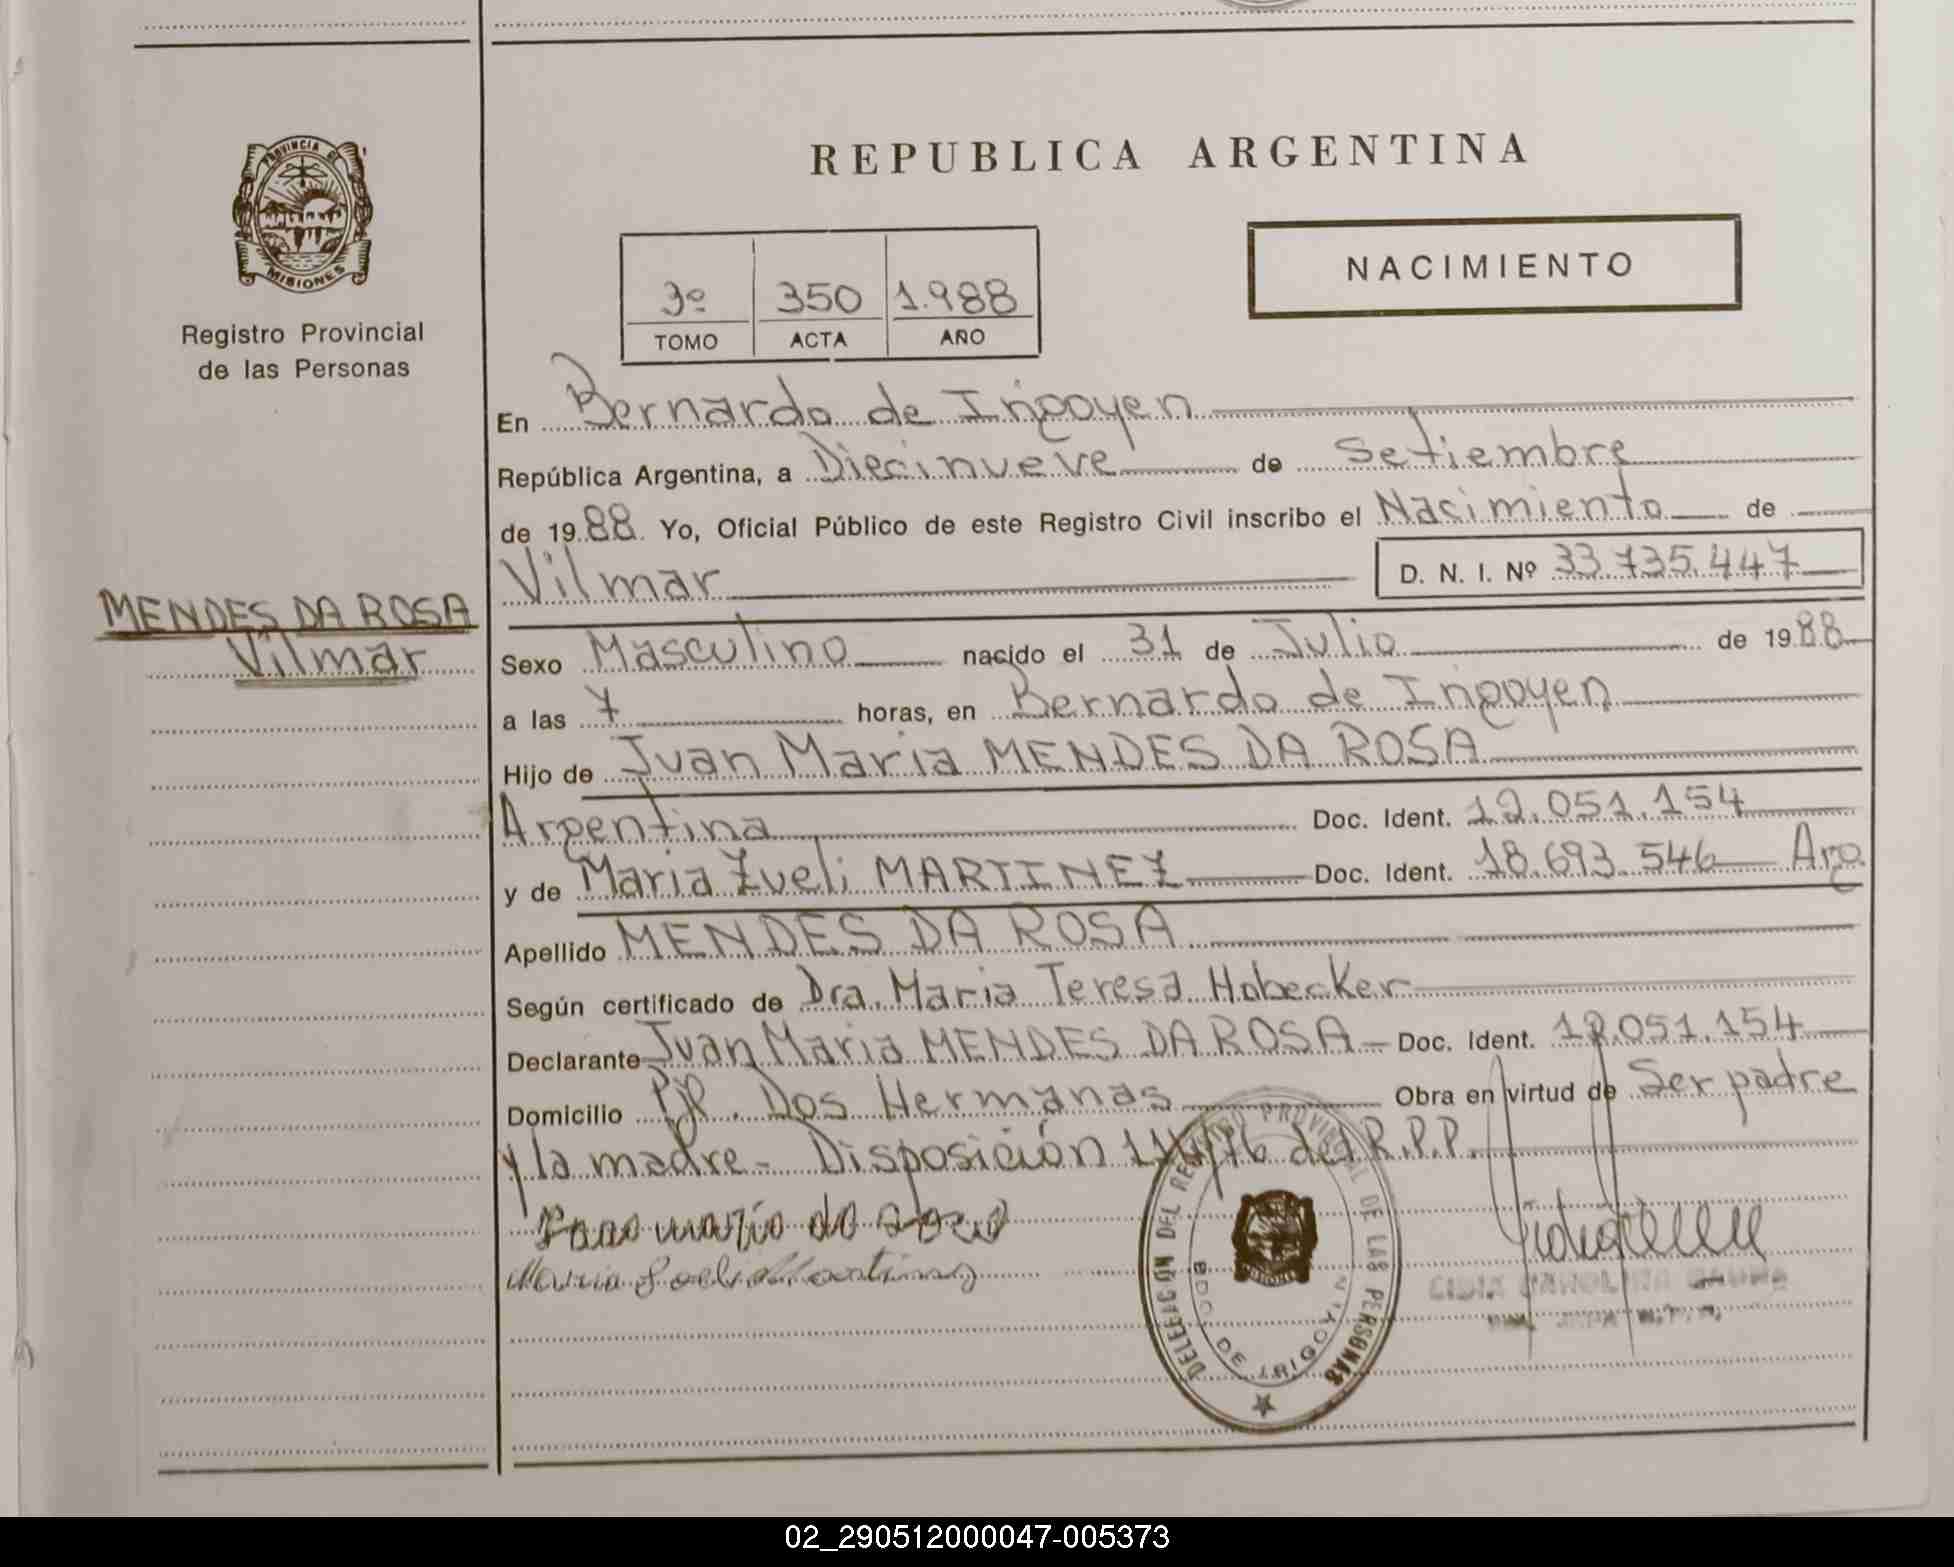 PROVINCIA DE
MISIONES
Registro Provincial
de las Personas
MENDES DA ROSA
Vilmar
REPUBLICA ARGENTINA
NACIMIENTO
3º 350 1.988
TOMO ACTA AÑO
En Bernardo de Irigoyen
República Argentina, a Diecinueve de Setiembre
de 1988 Yo, Oficial Público de este Registro Civil inscribo el Nacimiento de
Vilmar D. N. I. Nº 33.735.447
Sexo Masculino nacido el 31 de Julio de 1988
a las 7 horas, en Bernardo de Irigoyen
Hijo de Juan Maria MENDES DA ROSA
Argentina Doc. Ident. 12.051.154
y de Maria Zueli MARTINEZ Doc. Ident. 18.693.546 Arg.
Apellido MENDES DA ROSA
Según certificado de Dra. Maria Teresa Hobecker
Declarante Juan Maria MENDES DA ROSA Doc. Ident. 12.051.154
Domicilio PJR. Dos Hermanas Obra en virtud de Ser padre
y la madre - Disposición 114/76 del R.P.P.
DELEGACIÓN DEL REGISTRO PROVINCIAL DE LAS PERSONAS
BDO. DE IRIGOYEN
02_290512000047-005373